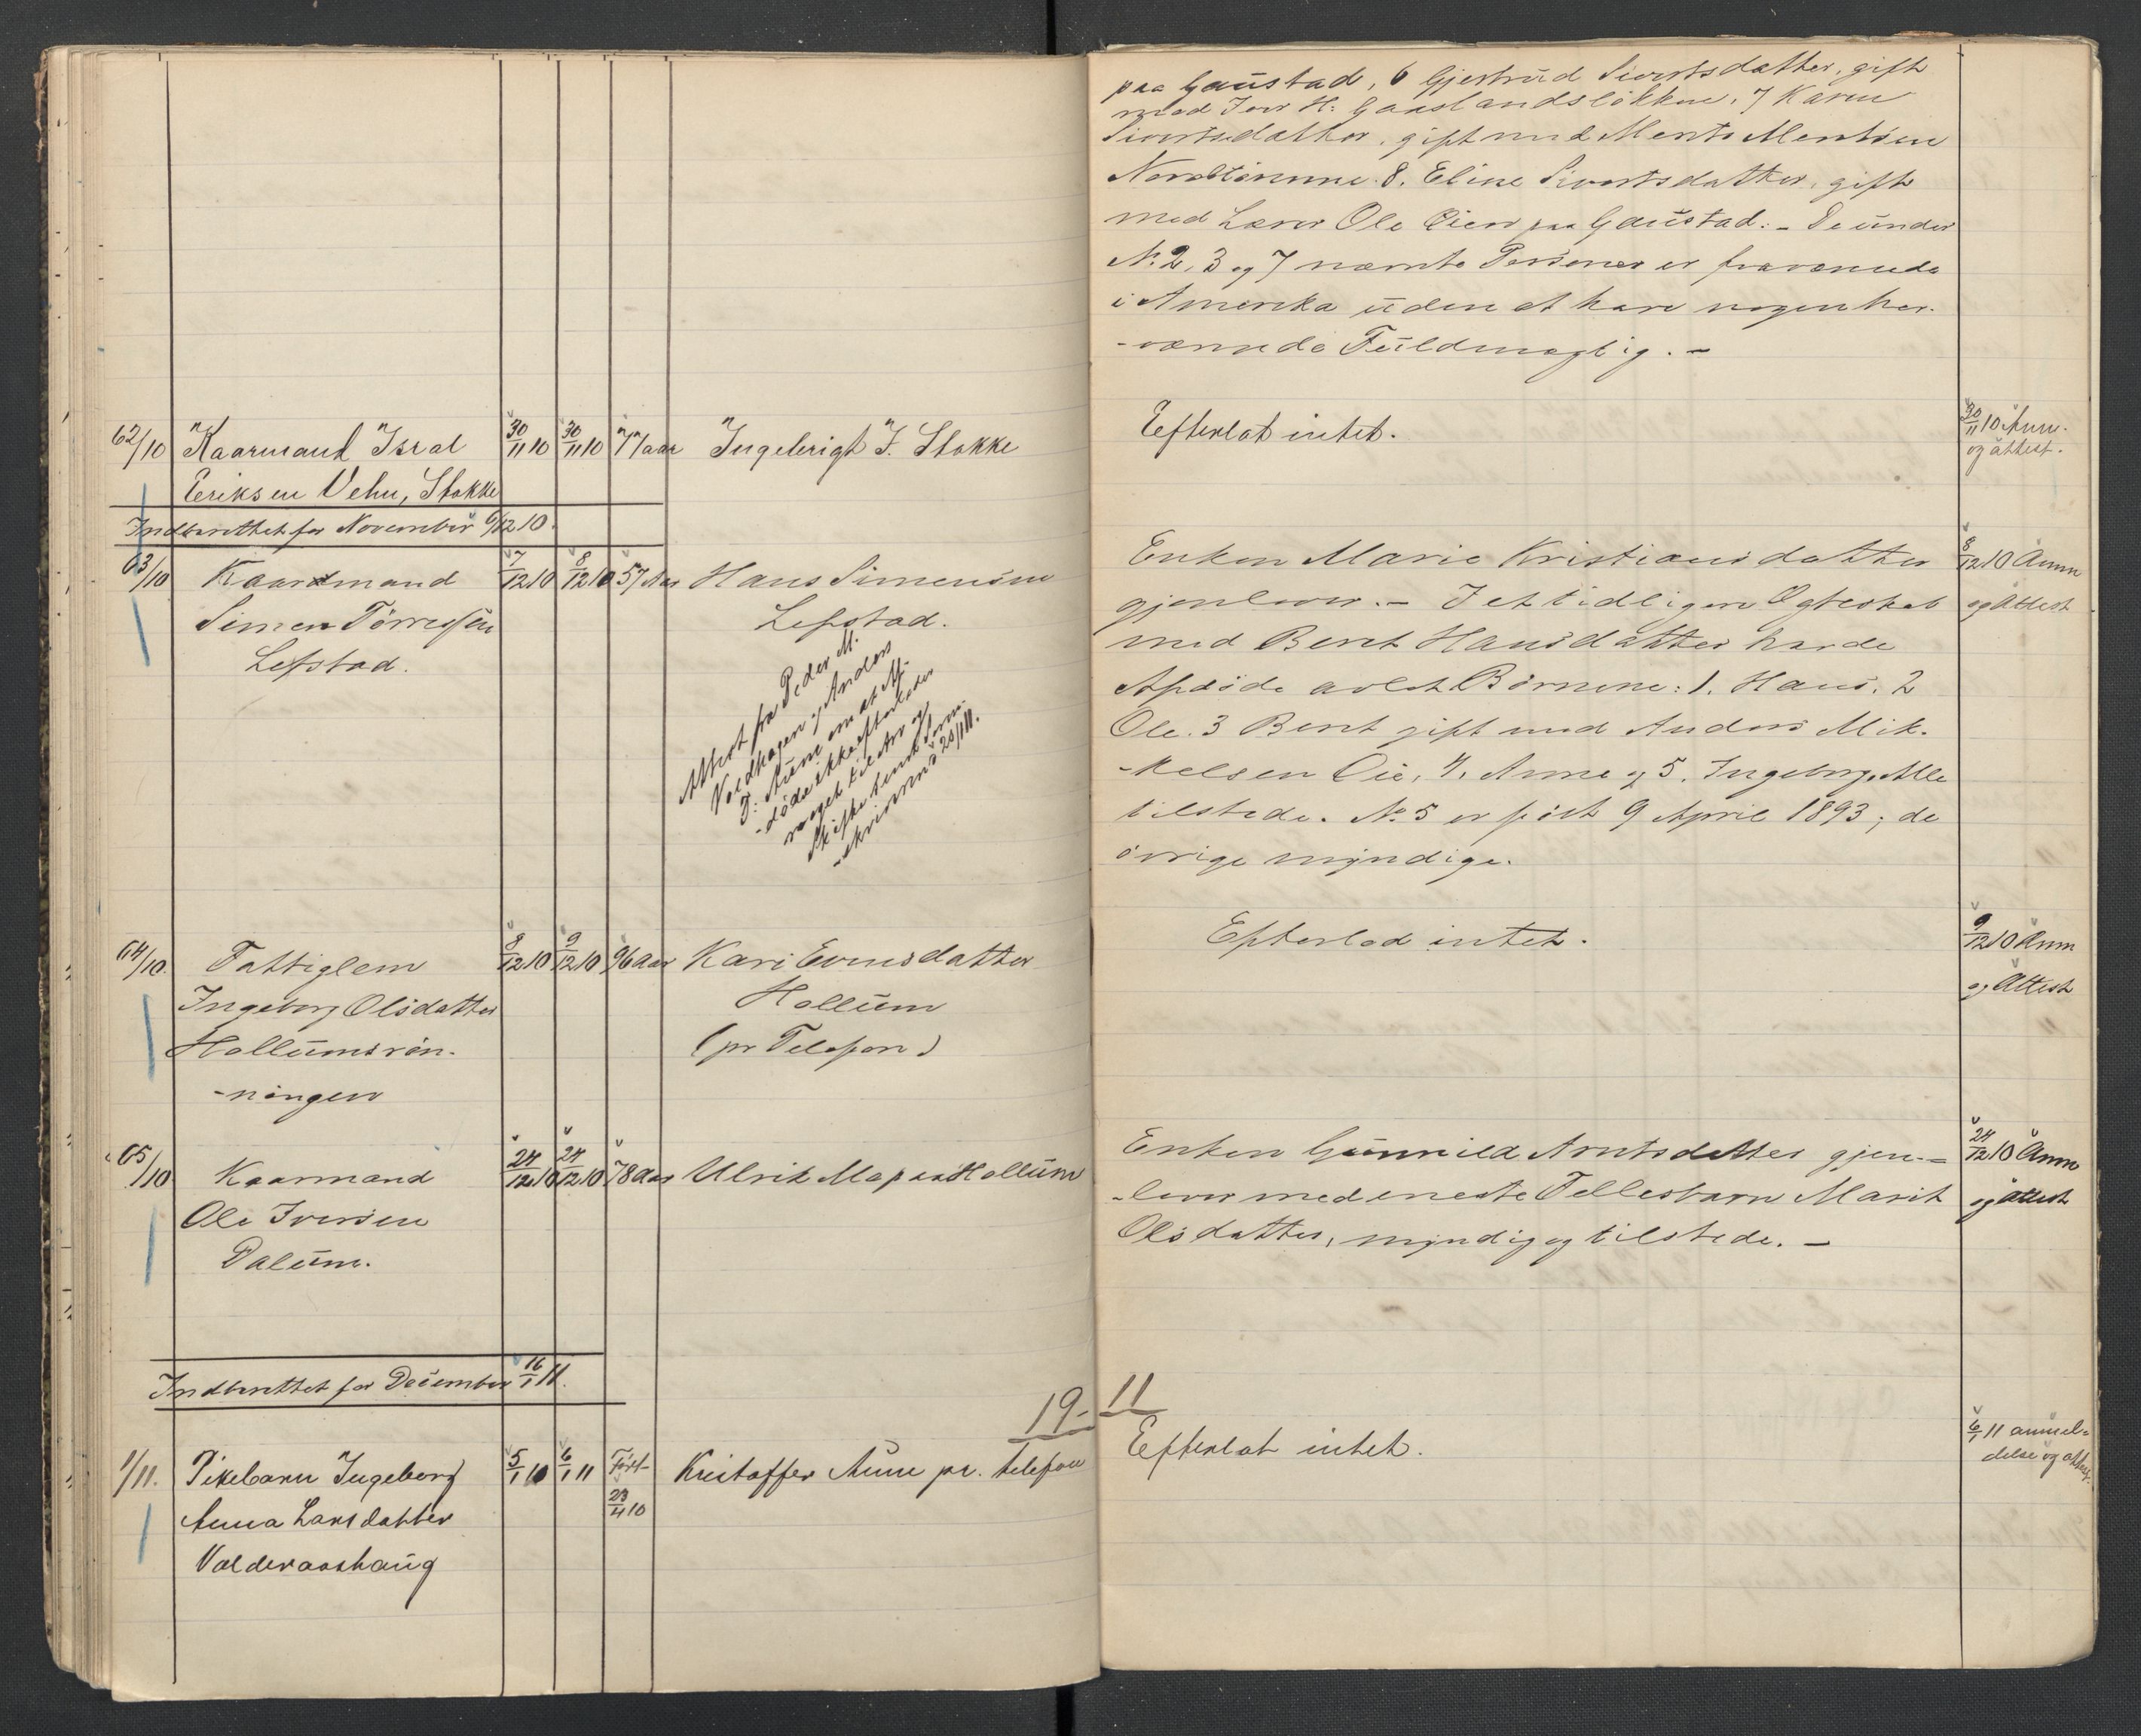 62/10 Kaarmand Isral 30/11 10 30/11 10 77 aar Ingebrigt I. Stokke
Eriksen Vehn, Stokke
Indberettet for November 6/12 10.
63/10 Kaarmand 7/12 10 8/12 10 57 Aar Hans Simensen
Simen Törressen Lefstad.
Lefstad.
Attest fra Peder M.
Voldhagen og Anders
J. Aune om at Af-
-döde ikke efterlader
noget til Arv og
Skifte henlt. Dom-
-skrinnd 20/1 11.
64/10. Fattiglem 8/12 10 9/12 10 96 Aar Kari Evensdatter
Ingeborg Olsdatter Hollum
Hollumsrön- (pr Telefon)
-ningen
65/10 Kaarmand 24/12 10 24/12 10 78 Aar Ulrik Mo paa Hollum
Ole Iversen
Dalum.
Indberettet for December 16/1 11.
19-
1/11. Pikebarn Ingeborg 5/1 10 6/1 11 Född 23/4 10 Kristoffer Aune pr. telefon
Anna Larsdatter
Valderaashaug
paa Gaustad, 6 Gjertrud Sivertsdatter, gift
med Iver H. Gaaslandslökken, 7 Karen
Sivertsdatter, gift med Ments Mentsen
Nordtömme. 8. Eline Sivertsdatter, gift
med Lærer Ole Öien paa Gaustad. - De under
No. 2, 3 og 7 nævnte Personer er fraværende
i Amerika uden at have nogen her-
-værende Fuldmægtig. -
Efterlot intet. 30/11 10 Anm.
og attest.
Enken Marie Kristiansdatter 8/12 10 Anm
gjenlever. - I et tidligere Ægteskab og Attest
med Berit Hansdatter havde
Afdöde avlet Börnene: 1. Hans, 2
Ole. 3 Berit gift med Anders Mik-
-kelsen Öie, 4. Anne og 5. Ingeborg. Alle
tilstede. No. 5 er född 9 April 1893; de
övrige myndige.
Efterlod intet. 9/12 10 Anm
og Attest
Enken Gunnild Arntsdatter gjen- 24/12 10 Anm
-lever med eneste Fellesbarn Marit og attest
Olsdatter, myndig og tilstede. -
11
Efterlot intet. 6/1 11 anmel-
delse og attest.